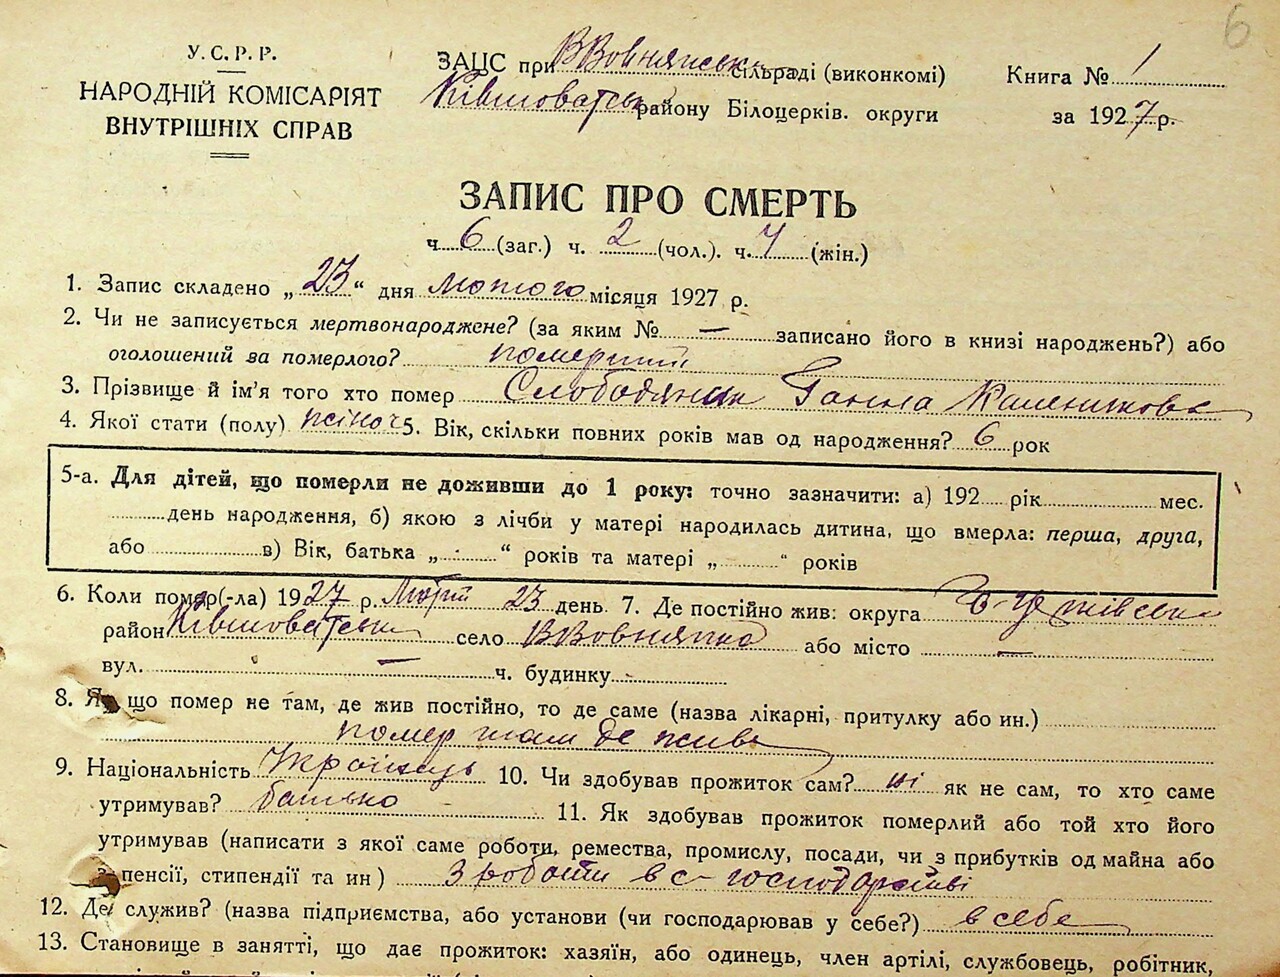 6
У.С.Р.Р.
НАРОДНІЙ КОМІСАРІЯТ
ВНУТРІШНІХ СПРАВ
ЗАЦС при ВВовнянськ сільраді (виконкомі)
Ківшоватськ району Білоцерків. округи
Книга № 1
за 1927 р.
ЗАПИС ПРО СМЕРТЬ
ч. 6 (заг.) ч. 2 (чол.). ч. 4 (жін.)
1. Запис складено „23“ дня лютого місяця 1927 р.
2. Чи не записується мертвонароджене? (за яким № — записано його в книзі народжень?) або
оголошений за померлого? померший
3. Прізвище й ім'я того хто помер Слободяник Ганна Калениковна
4. Якої стати (полу) жіноч 5. Вік, скільки повних років мав од народження? 6 рок
5-а. Для дітей, що померли не доживши до 1 року: точно зазначити: а) 192 рік мес.
день народження, б) якою з лічби у матері народилась дитина, що вмерла: перша, друга,
або в) Вік, батька „ “ років та матері „ “ років
6. Коли помер(-ла) 1927 р. Лютий 23 день. 7. Де постійно жив: округа Б-Церківськ
район Ківшоватськ село ВВовнянка або місто —
вул. — ч. будинку
8. Як що помер не там, де жив постійно, то де саме (назва лікарні, притулку або ин.)
помер там де жив
9. Національність Українець 10. Чи здобував прожиток сам? ні як не сам, то хто саме
утримував? батько 11. Як здобував прожиток померлий або той хто його
утримував (написати з якої саме роботи, ремества, промислу, посади, чи з прибутків од майна або
з пенсії, стипендії та ин) З роботи в с-господарстві
12. Де служив? (назва підприємства, або установи (чи господарював у себе?) в себе
13. Становище в занятті, що дає прожиток: хазяїн, або одинець, член артілі, службовець, робітник,